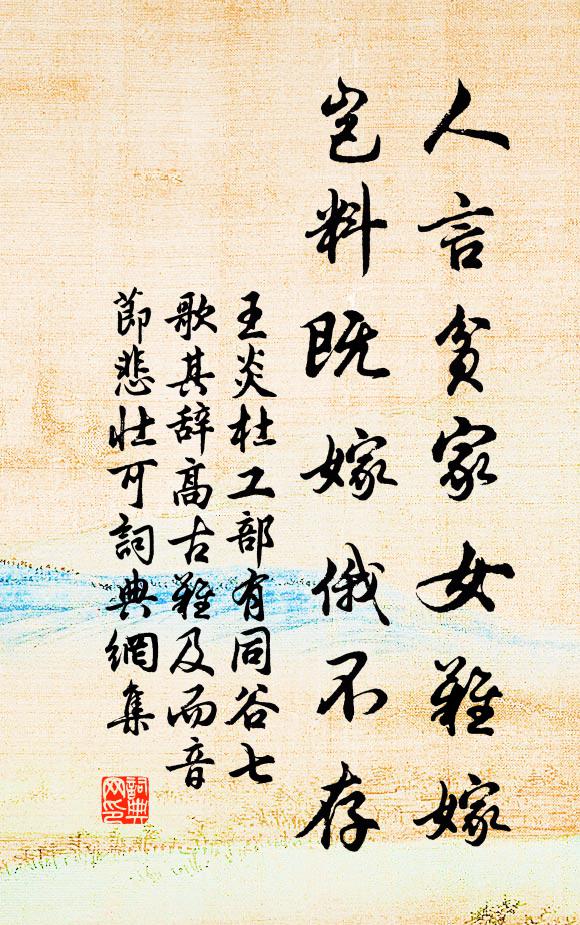 人言貧家女難嫁
豈料既嫁俄不存
王炎杜工部有同谷七
歌其辞高古難及而音
節悲壮可詞典網集
詞典网印